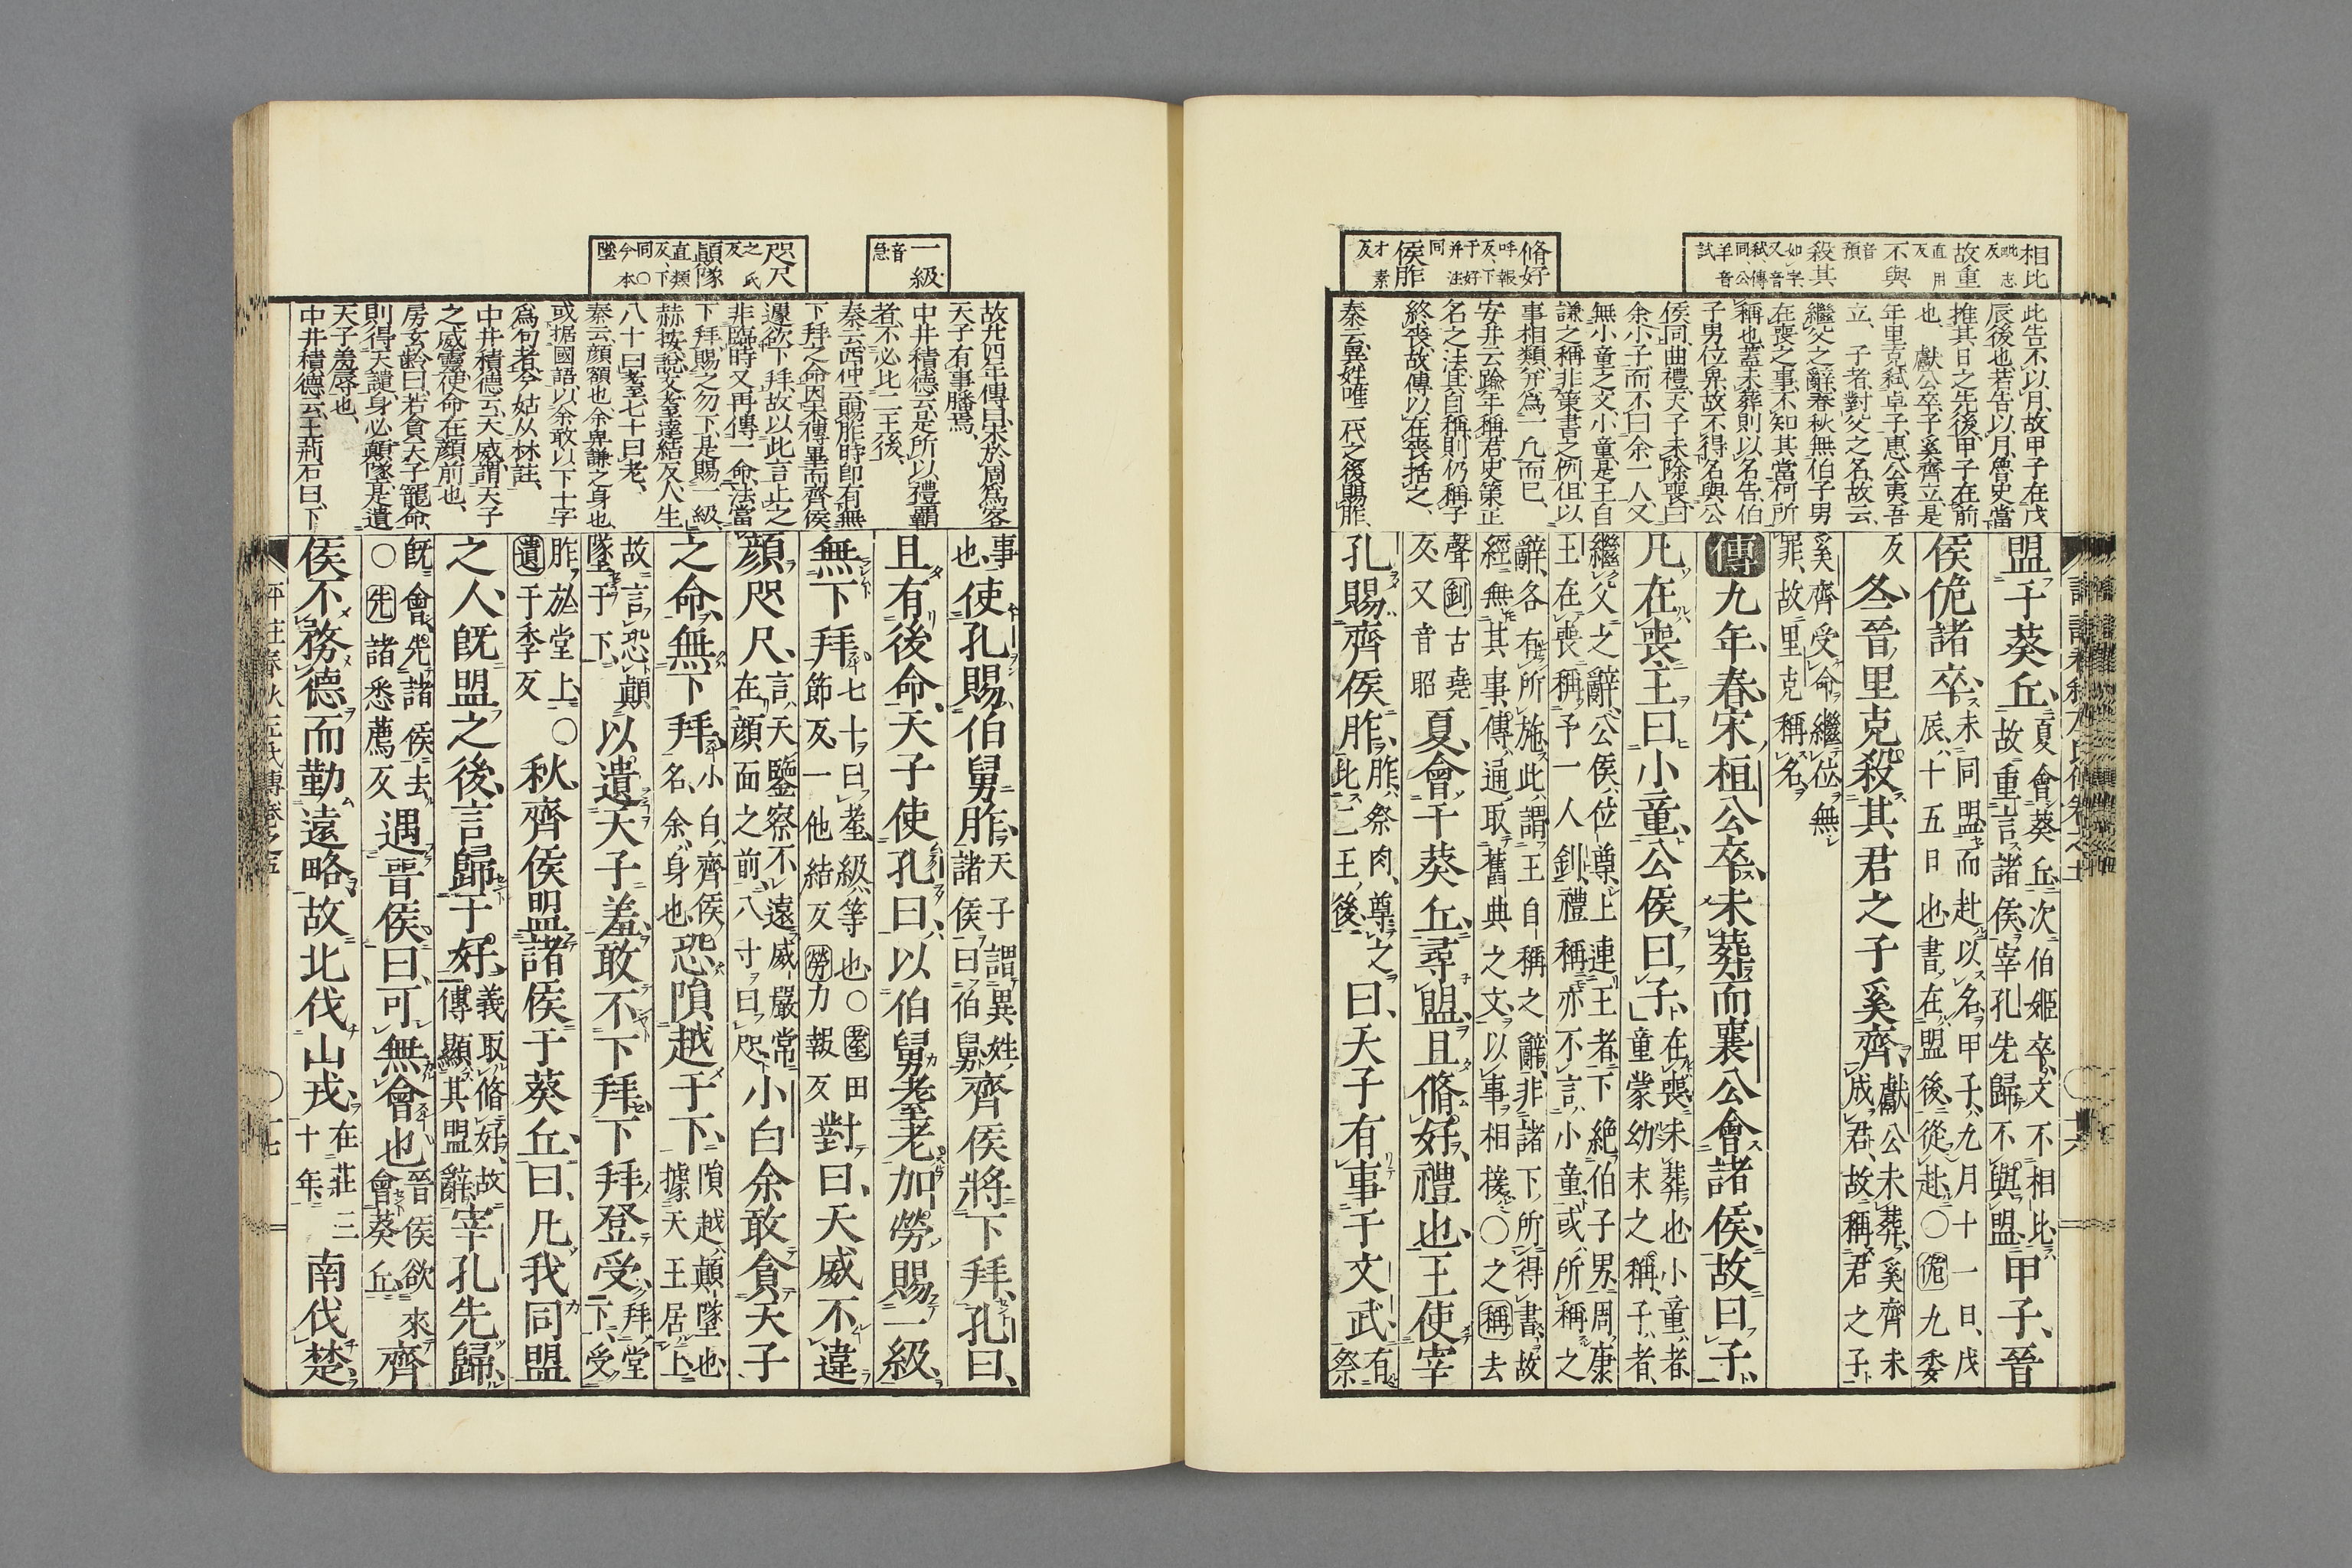 相比
毗志反
故重
直用反
不與
音預
殺其
如字又音弒傳同公羊音試
脩好
呼報反下于好并注同
侯胙
才素反
此告不以月故甲子在戊
辰後也若告以月魯史當
推其日之先後甲子在前
也獻公卒子奚齊立是
年里克弒卓子惠公夷吾
立子者對父之名故云
繼父之辭春秋無伯子男
在喪之事不知其當何所
稱也蓋未葬則以名告伯
子男位卑故不得名與公
侯同曲禮天子未除喪曰
余小子而不曰余一人又
無小童之文小童是王自
謙之稱非策書之例但以
事相類并為一凡而已
安井云踰年稱君史策正
名之法其自稱則仍稱子
終喪故傳以在喪括之
秦云異姓唯二代之後賜胙
盟于葵丘夏會葵丘次伯姬卒文不相比故重言諸侯宰孔先歸不與盟甲子晉
侯佹諸卒未同盟而赴以名甲子九月十一日戊辰十五日也書在盟後從赴〇佹九委
反冬晉里克殺其君之子奚齊獻公未葬奚齊未成君故稱君之子
奚齊受命繼位無罪故里克稱名
傳九年春宋桓公卒未葬而襄公會諸侯故曰子
凡在喪王曰小童公侯曰子在喪未葬也小童者童蒙幼末之稱子者
繼父之辭公侯位尊上連王者下絶伯子男周康王在喪稱予一人釗禮稱亦不言小童或所稱之
辭各有所施此謂王自稱之辭非諸下所得書故經無其事傳通取舊典之文以事相接〇之稱去
聲釗古堯反又音昭夏會于葵丘尋盟且脩好禮也王使宰
孔賜齊侯胙胙祭肉尊之此二王後曰天子有事于文武有祭
一級
音急
咫尺
之氏反
顚隊
直類反下同〇今本墜
故廿四年傳曰宋於周為客
天子有事膰焉
中井積德云是所以禮霸
者不必比二王後
秦云西仲云賜胙時即有無
下拜之命因未傳畢而齊侯
遽欲下拜故以此言止之
非臨時又再傳一命法當
下拜賜之勿下是賜一級
赫按說文耋達結反人生
八十曰耋七十曰老
秦云顔額也余卑謙之身也
或据國語以余敢以下十字
為句者今姑从林註
中井積德云天威謂天子
之威靈使命在顔前也
房玄齡曰若貪天子寵命
則得天譴身必顚墜是遺
天子羞辱也
中井積德云王荊石曰下
事也使孔賜伯舅胙天子謂異姓諸侯曰伯舅齊侯將下拜孔曰
且有後命天子使孔曰以伯舅耋老加勞賜一級
無下拜七十曰耋級等也〇耋田節反一他結反勞力報反對曰天威不違
顔咫尺言天鑒察不遠威嚴常在顔面之前八寸曰咫小白余敢貪天子
之命無下拜小白齊侯名余身也恐隕越于下隕越顚墜也據天王居上
故言恐顚墜于下以遺天子羞敢不下拜下拜登受拜堂下受
胙於堂上〇遺于季反秋齊侯盟諸侯于葵丘曰凡我同盟
之人既盟之後言歸于好義取脩好故傳顯其盟辭宰孔先歸
既會先諸侯去〇先諸悉薦反遇晉侯曰可無會也晉侯欲來會葵丘齊
侯不務德而勤遠略故北伐山戎在莊三十年南伐楚